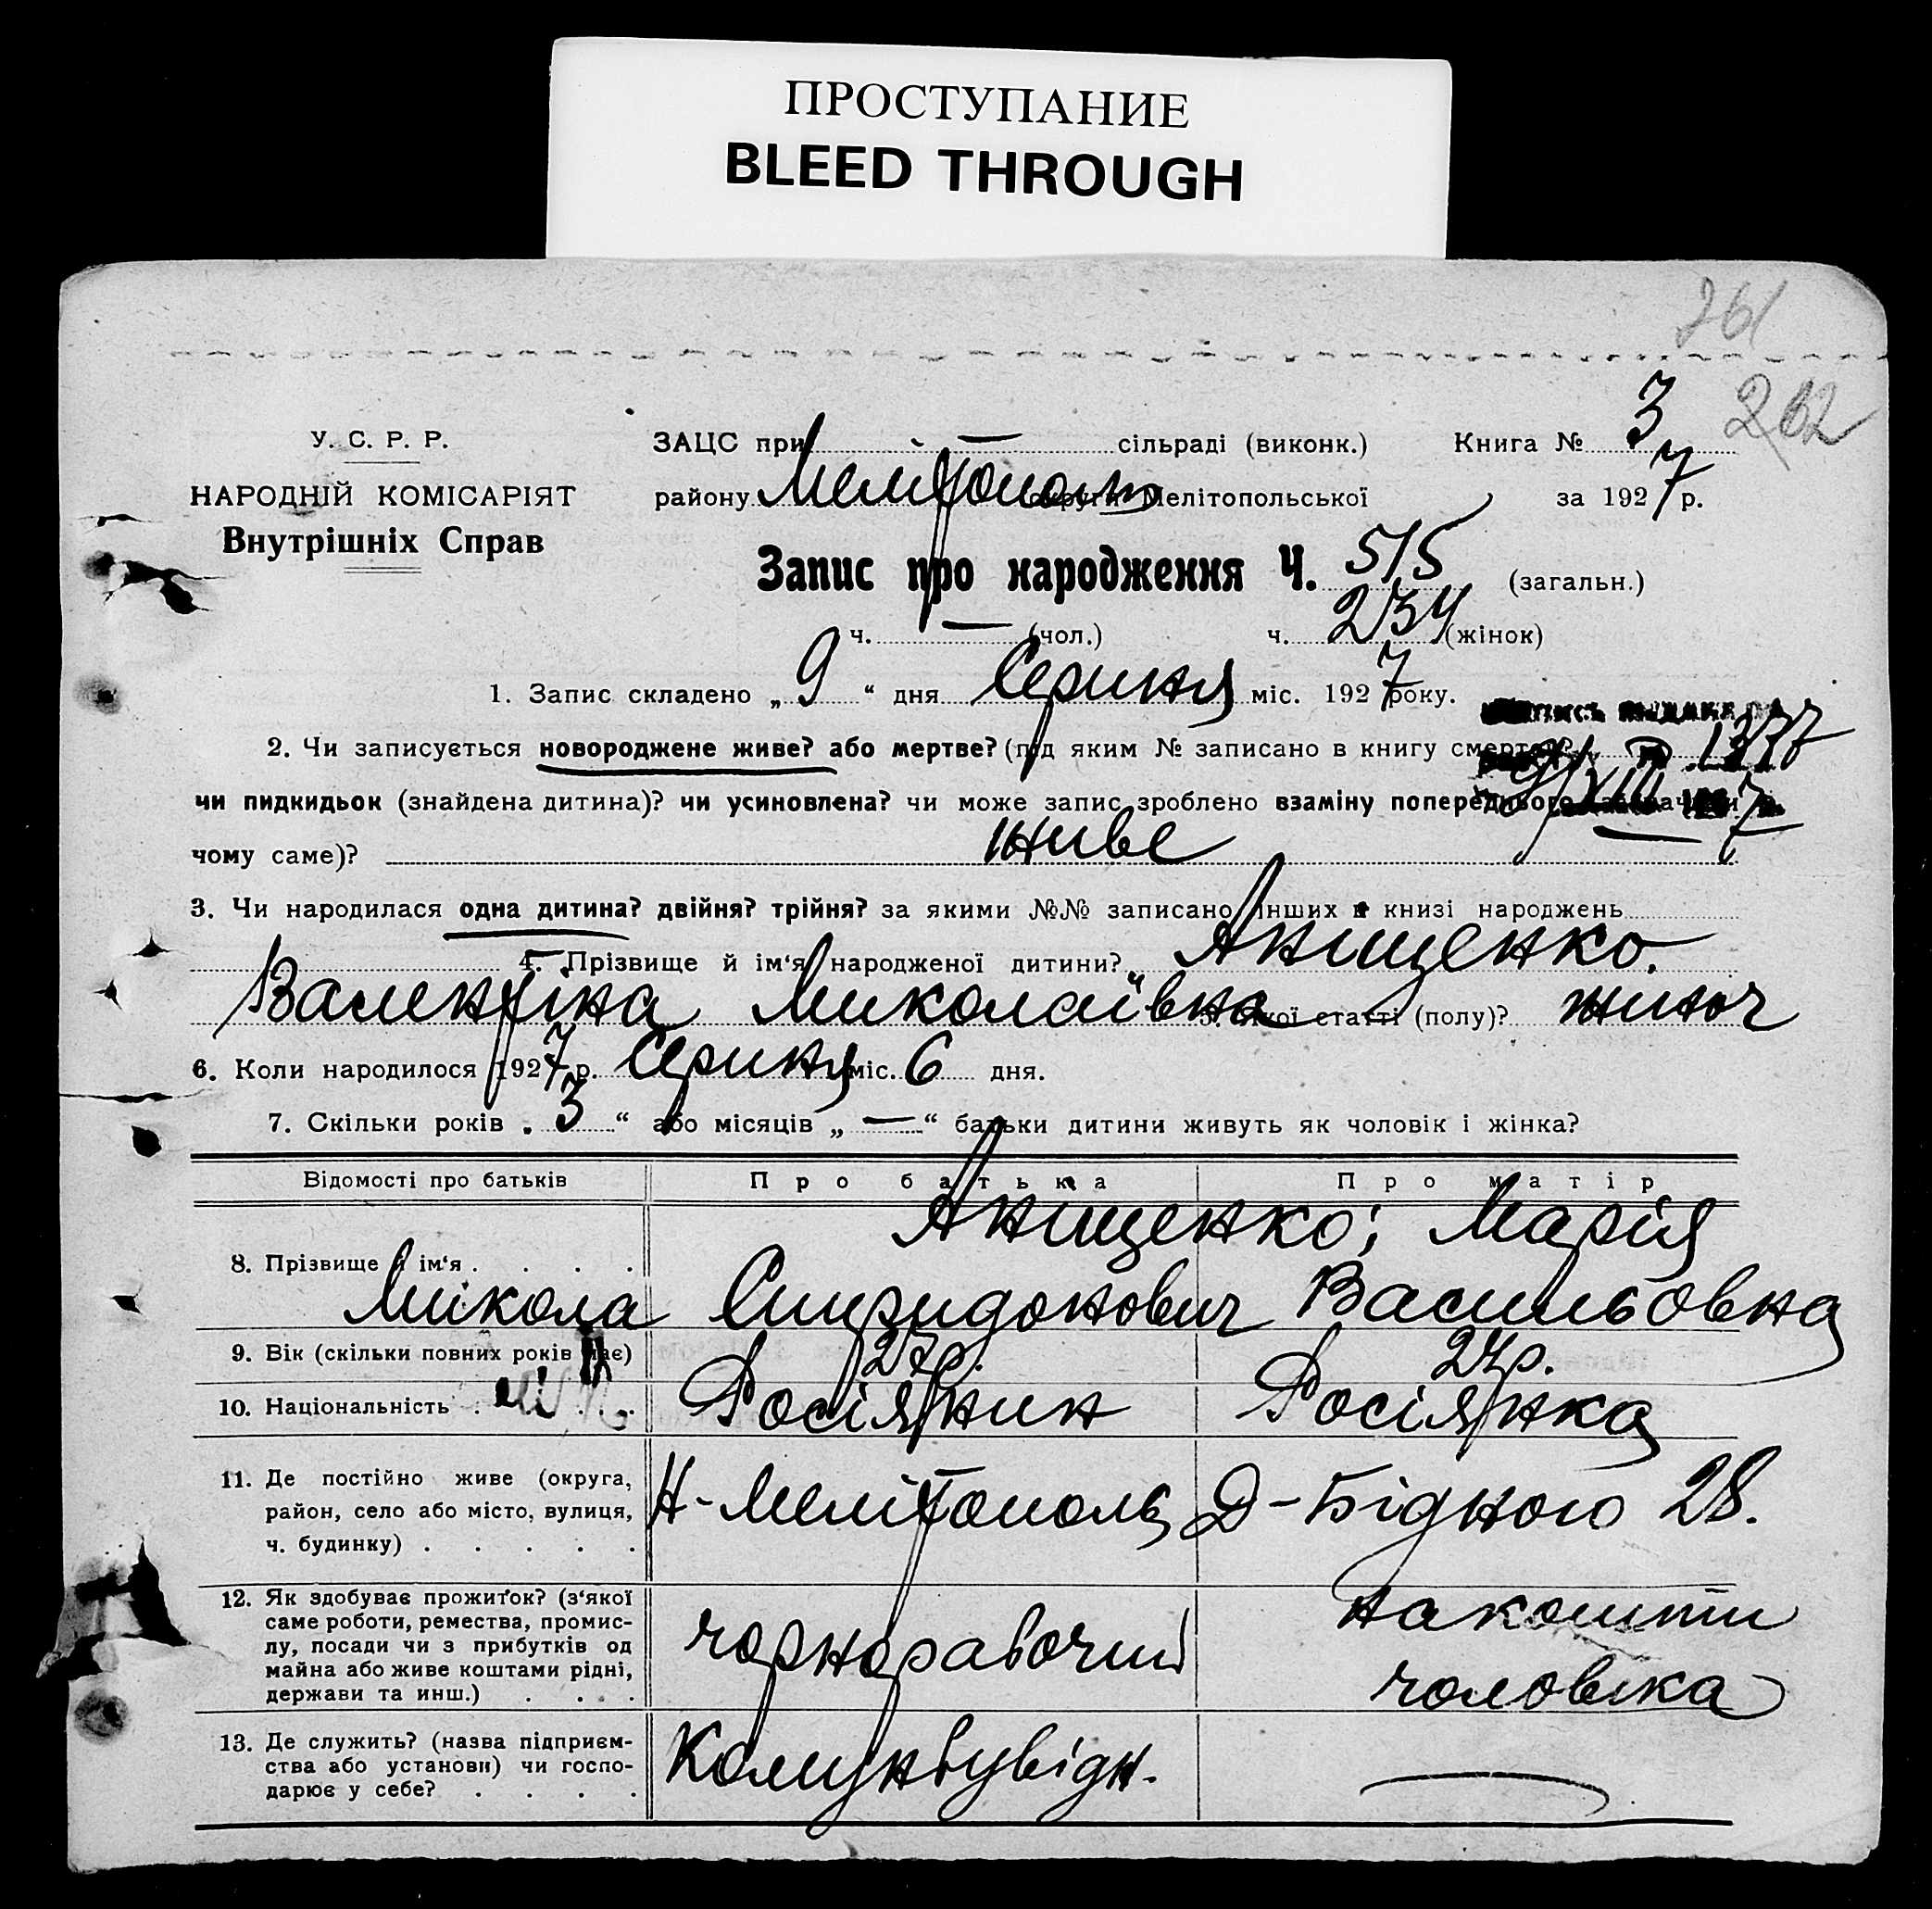 ПРОСТУПАНИЕ
BLEED THROUGH
261
262
У. С. Р. Р.
НАРОДНІЙ КОМІСАРІЯТ
Внутрішніх Справ
ЗАЦС при — сільраді (виконк.) Книга № 3
району Мелітопол округи Мелітопольської за 1927 р.
Запис про народження Ч. 515 (загальн.)
ч. — (чол.) ч. 234 (жінок)
1. Запис складено „9“ дня Серпня міс. 1927 року.
2. Чи записується новороджене живе? або мертве? (під яким № записано в книгу смертей? 1377
чи пидкидьок (знайдена дитина)? чи усиновлена? чи може запис зроблено взаміну попереднього 9/VIII 1927
чому саме)? живе
3. Чи народилася одна дитина? двійня? трійня? за якими №№ записано інших в книзі народжень
4. Прізвище й ім‘я народженої дитини? Анищенко.
Валентіна Миколаївна 5. Якої статті (полу)? жиноч
6. Коли народилося 1927 р. Серпня міс. 6 дня.
7. Скільки років „3“ або місяців „—“ батьки дитини живуть як чоловік і жінка?
Відомості про батьків Про батька Про матір
8. Прізвище й ім‘я Анищенко; Марія
Микола Спиридонович Васильовна
9. Вік (скільки повних років має) 27р. 24р.
10. Національність Росіянин Росіянка
11. Де постійно живе (округа,
район, село або місто, вулиця,
ч. будинку) Н-Мелітополь Д-Бідного 28.
12. Як здобуває прожиток? (з‘якої
саме роботи, ремества, промис-
лу, посади чи з прибутків од
майна або живе коштами рідні,
держави та инш.) чорнорабочий на кошти
чоловіка
13. Де служить? (назва підприєм-
ства або установи) чи госпо-
дарює у себе? Комунбувідн. —